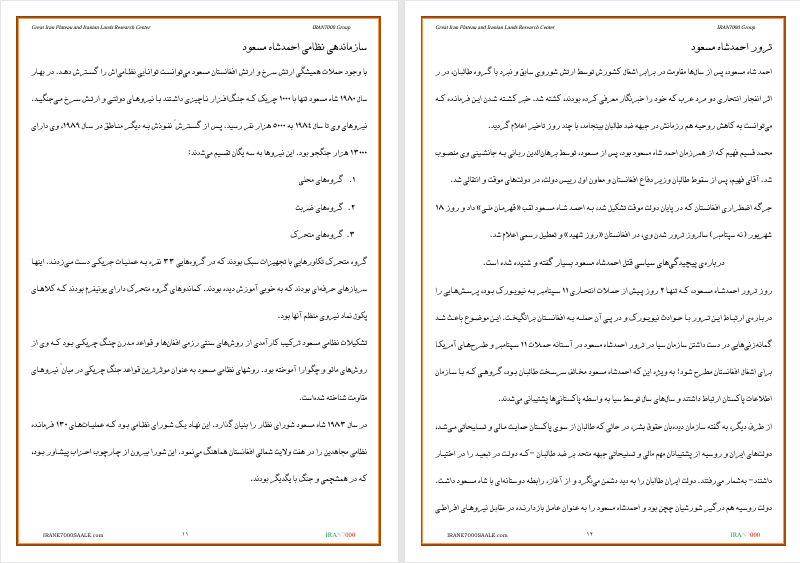 Great Iran Plateau and Iranian Lands Research Center
IRAN7000 Group
سازماندهی نظامی احمدشاه مسعود
با وجود حملات همیشگی ارتش سرخ و ارتش افغانستان مسعود می‌توانست توانایی نظامی‌اش را گسترش دهد. در بهار
سال ۱۹۸۰ شاه مسعود تنها با ۱۰۰۰ چریک که جنگ‌افزار ناچیزی داشتند با نیروهای دولتی و ارتش سرخ می‌جنگید.
نیروهای وی تا سال ۱۹۸۴ به ۵۰۰۰ هزار نفر رسید. پس از گسترش نفوذش به دیگر مناطق در سال ۱۹۸۹، وی دارای
۱۳۰۰۰ هزار جنگجو بود. این نیروها به سه یگان تقسیم می‌شدند:
۱. گروه‌های محلی
۲. گروه‌های ضربت
۳. گروه‌های متحرک
گروه متحرک تکاورهایی با تجهیزات سبک بودند که در گروه‌هایی ۳۳ نفره به عملیات چریکی دست می‌زدند. اینها
سربازهای حرفه‌ای بودند که به خوبی آموزش دیده بودند. کماندوهای گروه متحرک دارای یونیفرم بودند که کلاهای
پکول نماد نیروی منظم آنها بود.
تشکیلات نظامی مسعود ترکیب کارآمدی از روش‌های سنتی رزمی افغان‌ها و قواعد مدرن چنگ چریکی بود که وی از
روش‌های مائو و چگوارا آموخته بود. روشهای نظامی مسعود به عنوان موثرترین قواعد جنگ چریکی در میان نیروهای
مقاومت شناخته شده‌است.
در سال ۱۹۸۳ شاه مسعود شورای نظار را بنیان گذارد. این نهاد یک شورای نظامی بود که عملیت‌های ۱۳۰ فرمانده
نظامی مجاهدین را در هفت ولایت شمالی افغانستان هماهنگ می‌نمود. این شورا بیرون از چارچوب احزاب پیشاور بود،
که در همشچمی و جنگ با یکدیگر بودند.
IRANE7000SAALE.com
۱۱
IRAN7000
Great Iran Plateau and Iranian Lands Research Center
IRAN7000 Group
ترور احمدشاه مسعود
احمد شاه مسعود، پس از سال‌ها مقاومت در برابر اشغال کشورش توسط ارتش شوروی سابق و نبرد با گروه طالبان، در ر
اثر انفجار انتحاری دو مرد عرب که خود را خبرنگار معرفی کرده بودند، کشته شد. خبر کشته شدن این فرمانده که
می‌توانست به کاهش روحیه هم رزمانش در جبهه ضد طالبان بینجامد، با چند روز تاخیر اعلام گردید.
محمد قسیم فهیم که از همرزمان احمد شاه مسعود بود، پس از مسعود، توسط برهان‌الدین ربانی به جانشینی وی منصوب
شد. آقای فهیم، پس از سقوط طالبان وزیر دفاع افغانستان و معاون اول رییس دولت، در دولت‌های موقت و انتقالی شد.
جرگه اضطراری افغانستان که در پایان دولت موقت تشکیل شد، به احمد شاه مسعود لقب «قهرمان ملی» داد و روز ۱۸
شهریور (نه سپتامبر) سالروز ترور شدن وی، در افغانستان «روز شهید» و تعطیل رسمی اعلام شد.
درباره‌ی پیچیدگی‌های سیاسی قتل احمدشاه مسعود بسیار گفته و شنیده شده است.
روز ترور احمدشاه مسعود، که تنها ۲ روز پیش از حملات انتحاری ۱۱ سپتامبر به نیویورک بود، پرسش‌هایی را
درباره‌ی ارتباط این ترور با حوادث نیویورک و در پی آن حمله به افغانستان برانگیخت. این موضوع باعث شد
گمانه‌زنی‌هایی در دست داشتن سازمان سیا در ترور احمدشاه مسعود در آستانه حملات ۱۱ سپتامبر و طرح‌های آمریکا
برای اشغال افغانستان مطرح شود؛ به ویژه این که احمدشاه مسعود مخالف سرسخت طالبان بود، گروهی که با سازمان
اطلاعات پاکستان ارتباط داشتند و سال‌های سال توسط سیا به واسطه پاکستانی‌ها پشتیبانی می‌شدند.
از طرف دیگر، به گفته سازمان دیده‌بان حقوق بشر، در حالی که طالبان از سوی پاکستان حمایت مالی و تسلیحاتی می‌شد،
دولت‌های ایران و روسیه از پشتیبانان مهم مالی و تسلیحاتی جبهه متحد بر ضد طالبان –که دولت در تبعید را در اختیار
داشتند– به‌شمار می‌رفتند. دولت ایران طالبان را به دید دشمن می‌نگرد و از آغاز، رابطه دوستانه‌ای با شاه مسعود داشت.
دولت روسیه هم درگیر شورشیان چچن بود و احمدشاه مسعود را به عنوان عامل بازدارنده در مقابل نیروهای افراطی
IRANE7000SAALE.com
۱۲
IRAN7000